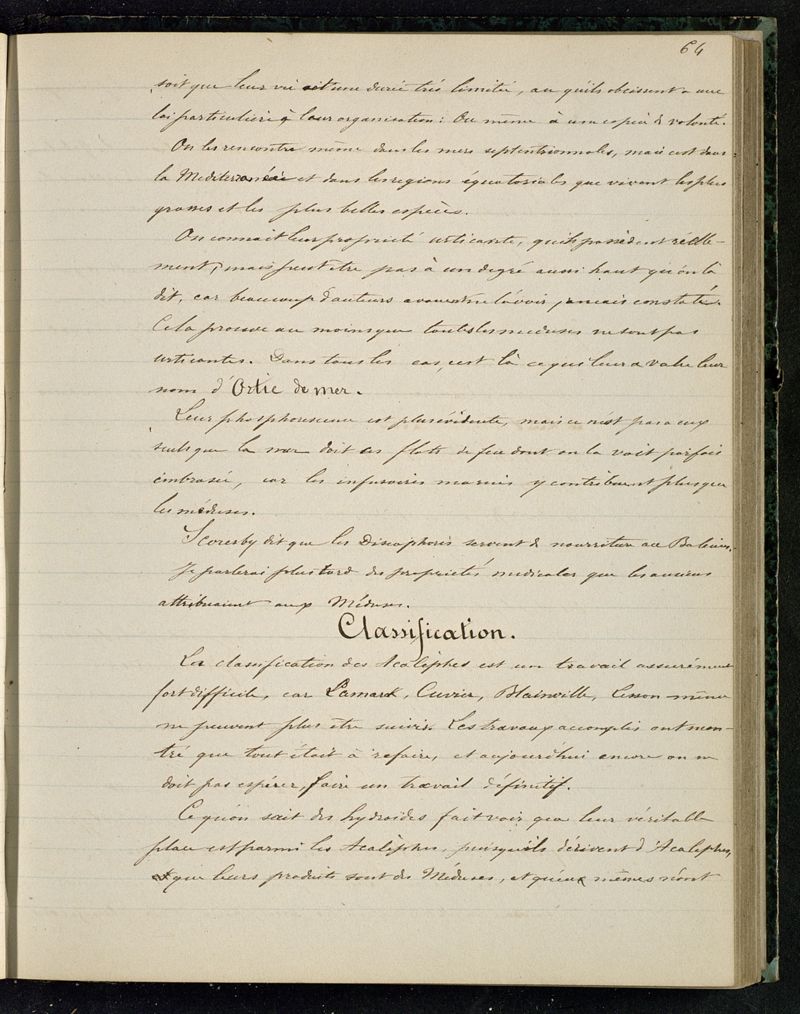 64
soit que leur vie ait une durée très limitée, ou qu'ils obeissent a une
loi particulière à leur organisation: Ou même à une copie de volonté.
On les rencontre même dans les mers septentrionnales, mais c'est dans
la Mediterranée et dans les regions équatoriales que vivent les plus
grosses et les plus belles espèces.
On connait leur propriété urticante, qu'ils possèdent réelle-
ment, mais peut être pas à un degré aussi haut qu'on l'a
dit, car beaucoup d'auteurs avouent ne l'avoir jamais constaté.
Cela prouve au moins que toutes les meduses ne sont pas
urticantes. Dans tous les cas, c'est là ce qui leur a valu leur
nom d'Ortie de mer.
Leur phosphorescence est plus évidente, mais ce n'est pas a eux
seuls que la mer doit ces flots de feu dont on la voit parfois
embrasée, car les infusoires marins y contribuent plus que
les méduses.
Scoresby dit que les Discophores servent de nourriture aux Baleines.
Je parlerai plus tard des propriétés medicales que les anciens
attribuaient aux Méduses.
Classification.
La classification des Acalèphes est un travail assurément
fort difficile, car Lamark, Cuvier, Blainville, Lesson même
ne peuvent plus être suivis. Les travaux accomplis ont mon-
tré que tout était à refaire, et aujourd'hui encore on ne
doit pas espérer faire un travail définitif.
Ce qu'on sait des hydroïdes fait voir que leur véritable
place est parmi les Acalèphes, puisqu'ils dérivent d'Acalèphes,
et que leurs produits sont des Méduses, et qu'eux mêmes n'ont